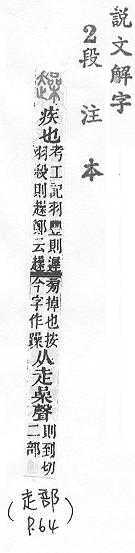 說文解字
2段注本
趮
疾也考工記羽豐則遲羽殺則趮鄭云趮旁掉也按今字作躁从走喿聲則到切二部
(走部
P.64)